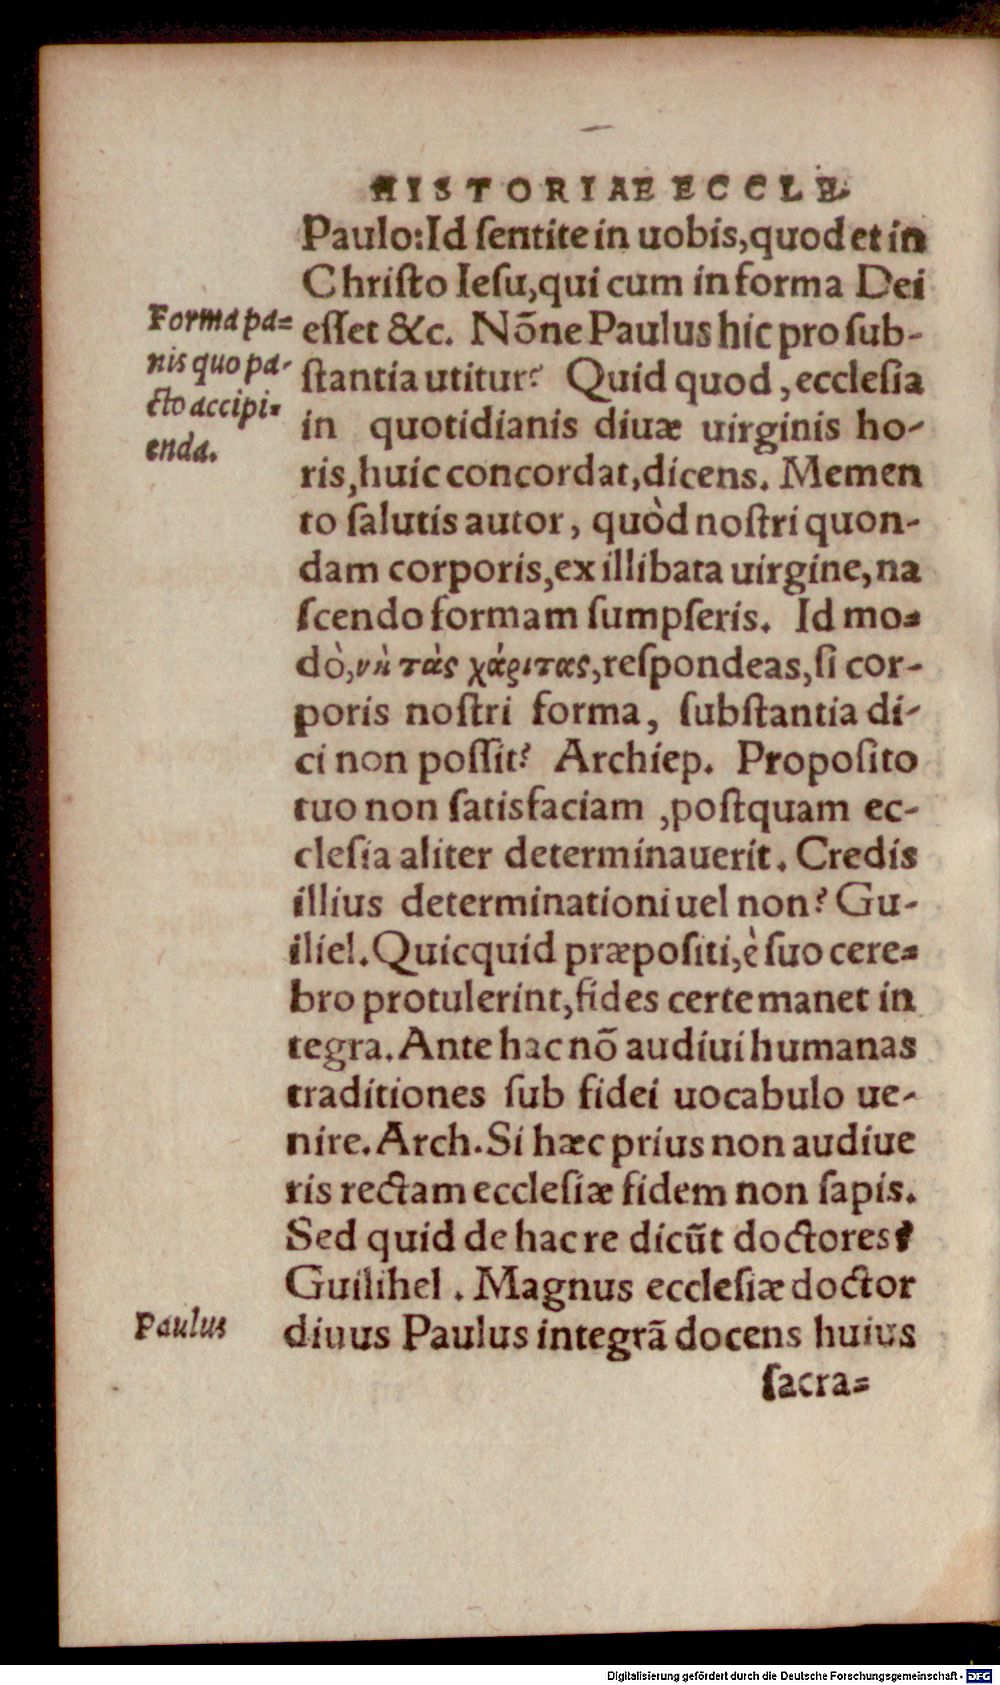 HISTORIAE ECCLE.
Paulo: Id ſentite in uobis, quod et in
Chriſto Ieſu, qui cum in forma Dei
Forma pa=
eſſet &c. Nōne Paulus hic pro ſub-
nis quo pa-
ſtantia utitur? Quid quod, eccleſia
cto accipi=
in quotidianis diuæ uirginis ho-
enda.
ris, huic concordat, dicens. Memen
to ſalutis autor, quòd noſtri quon-
dam corporis, ex illibata uirgine, na
ſcendo formam ſumpſeris. Id mo=
dò, νὴ τὰς χάριτας, reſpondeas, ſi cor-
poris noſtri forma, ſubſtantia di-
ci non poſſit? Archiep. Propoſito
tuo non ſatisfaciam, poſtquam ec-
cleſia aliter determinauerit. Credis
illius determinationi uel non? Gu-
iliel. Quicquid præpoſiti, è ſuo cere=
bro protulerint, fides certe manet in
tegra. Ante hac nō audiui humanas
traditiones ſub fidei uocabulo ue-
nire. Arch. Si hæc prius non audiue
ris rectam eccleſiæ fidem non ſapis.
Sed quid de hac re dicūt doctores?
Guilihel. Magnus eccleſiæ doctor
Paulus
diuus Paulus integrā docens huius
ſacra=
Digitalisierung gefördert durch die Deutsche Forschungsgemeinschaft - DFG